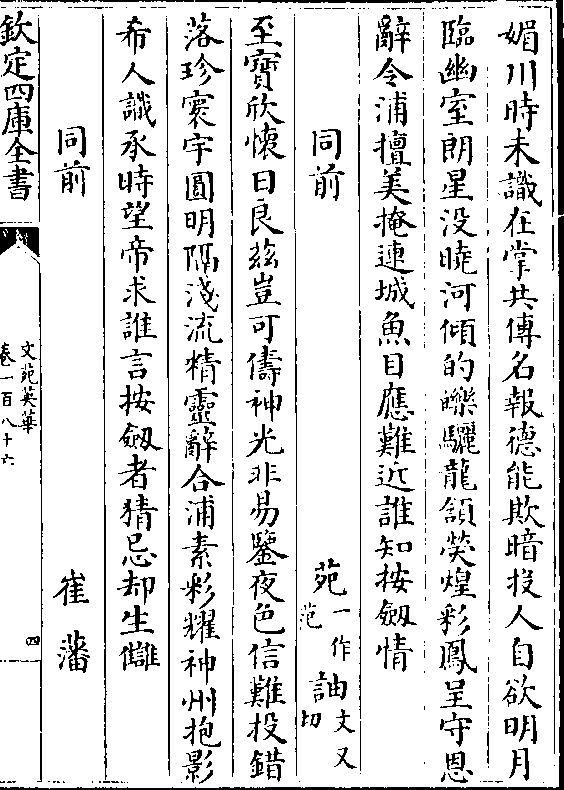 媚川時未識在掌共傳名報德能欺暗投人自欲明月
臨幽室朗星没曉河傾的皪驪龍頷熒煌彩鳳呈守恩
辭合浦擅美掩連城魚目應難近誰知按劔情
同前
苑一作范 訷文又切
至寳欣懷日良兹豈可儔神光非易鑒夜色信難投錯
落珍寰宇圓明隔淺流精靈辭合浦素彩耀神州抱影
希人識承時望帝求誰言按劔者猜忌却生讎
同前
崔藩
欽定四庫全書
文苑英華
卷一百八十六
四